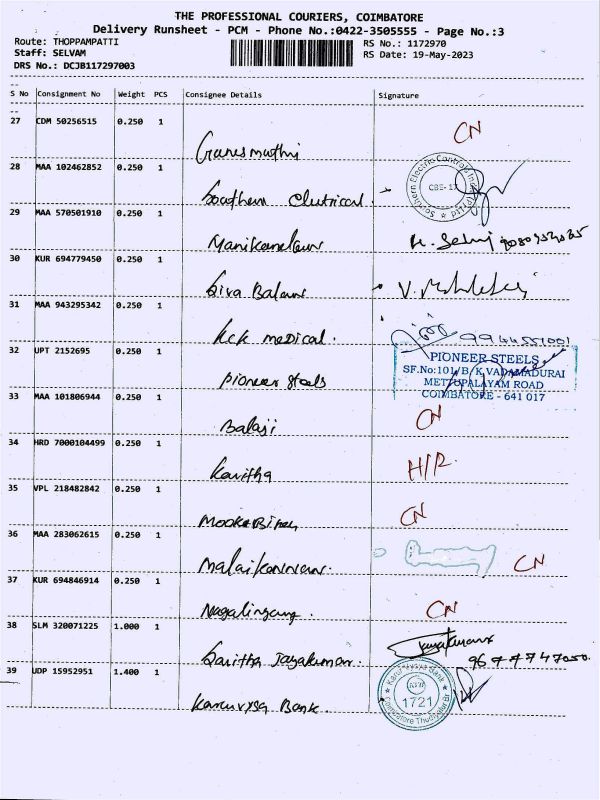 THE PROFESSIONAL COURIERS, COIMBATORE
Delivery Runsheet - PCM - Phone No.:0422-3505555 - Page No.:3
Route: THOPPAMPATTI
Staff: SELVAM
DRS No.: DCJB117297003
RS No.: 1172970
RS Date: 19-May-2023
S No Consignment No Weight PCS Consignee Details Signature
27 CDM 50256515 0.250 1
CN
28 MAA 102462852 0.250 1
Southern Electric Controls India (P) Ltd
CBE-17
Southern Electrical
29 MAA 570501910 0.250 1
Manikandan
30 KUR 694779450 0.250 1
Siva Balan
31 MAA 943295342 0.250 1
KCK medical.
9944551001
32 UPT 2152695 0.250 1
Pioneer Steels
PIONEER STEELS
SF.No:101/B, K.VADAMADURAI
METTUPALAYAM ROAD
COIMBATORE - 641 017
33 MAA 101806944 0.250 1
Balaji
CN
34 HRD 7000104499 0.250 1
Kavitha
H/R
35 VPL 218482842 0.250 1
CN
36 MAA 283062615 0.250 1
CN
37 KUR 694846914 0.250 1
Nagalingam.
CN
38 SLM 320071225 1.000 1
Savitha Jayakumar
9677747050.
39 UDP 15952951 1.400 1
Karur Vysya Bank
1721
Karurvysya Bank.